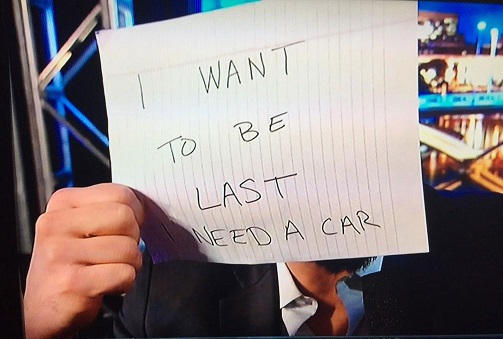 I WANT
TO BE
LAST
I NEED A CAR